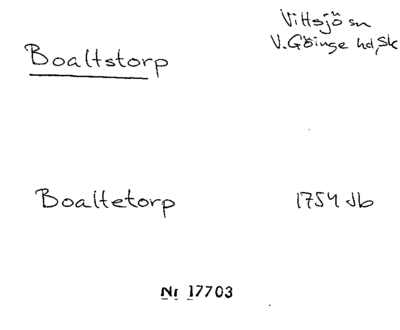 Vittsjö sn
V. Göinge hd, Sk
Boaltstorp
Boaltetorp 1754 Jb
Nr 17703